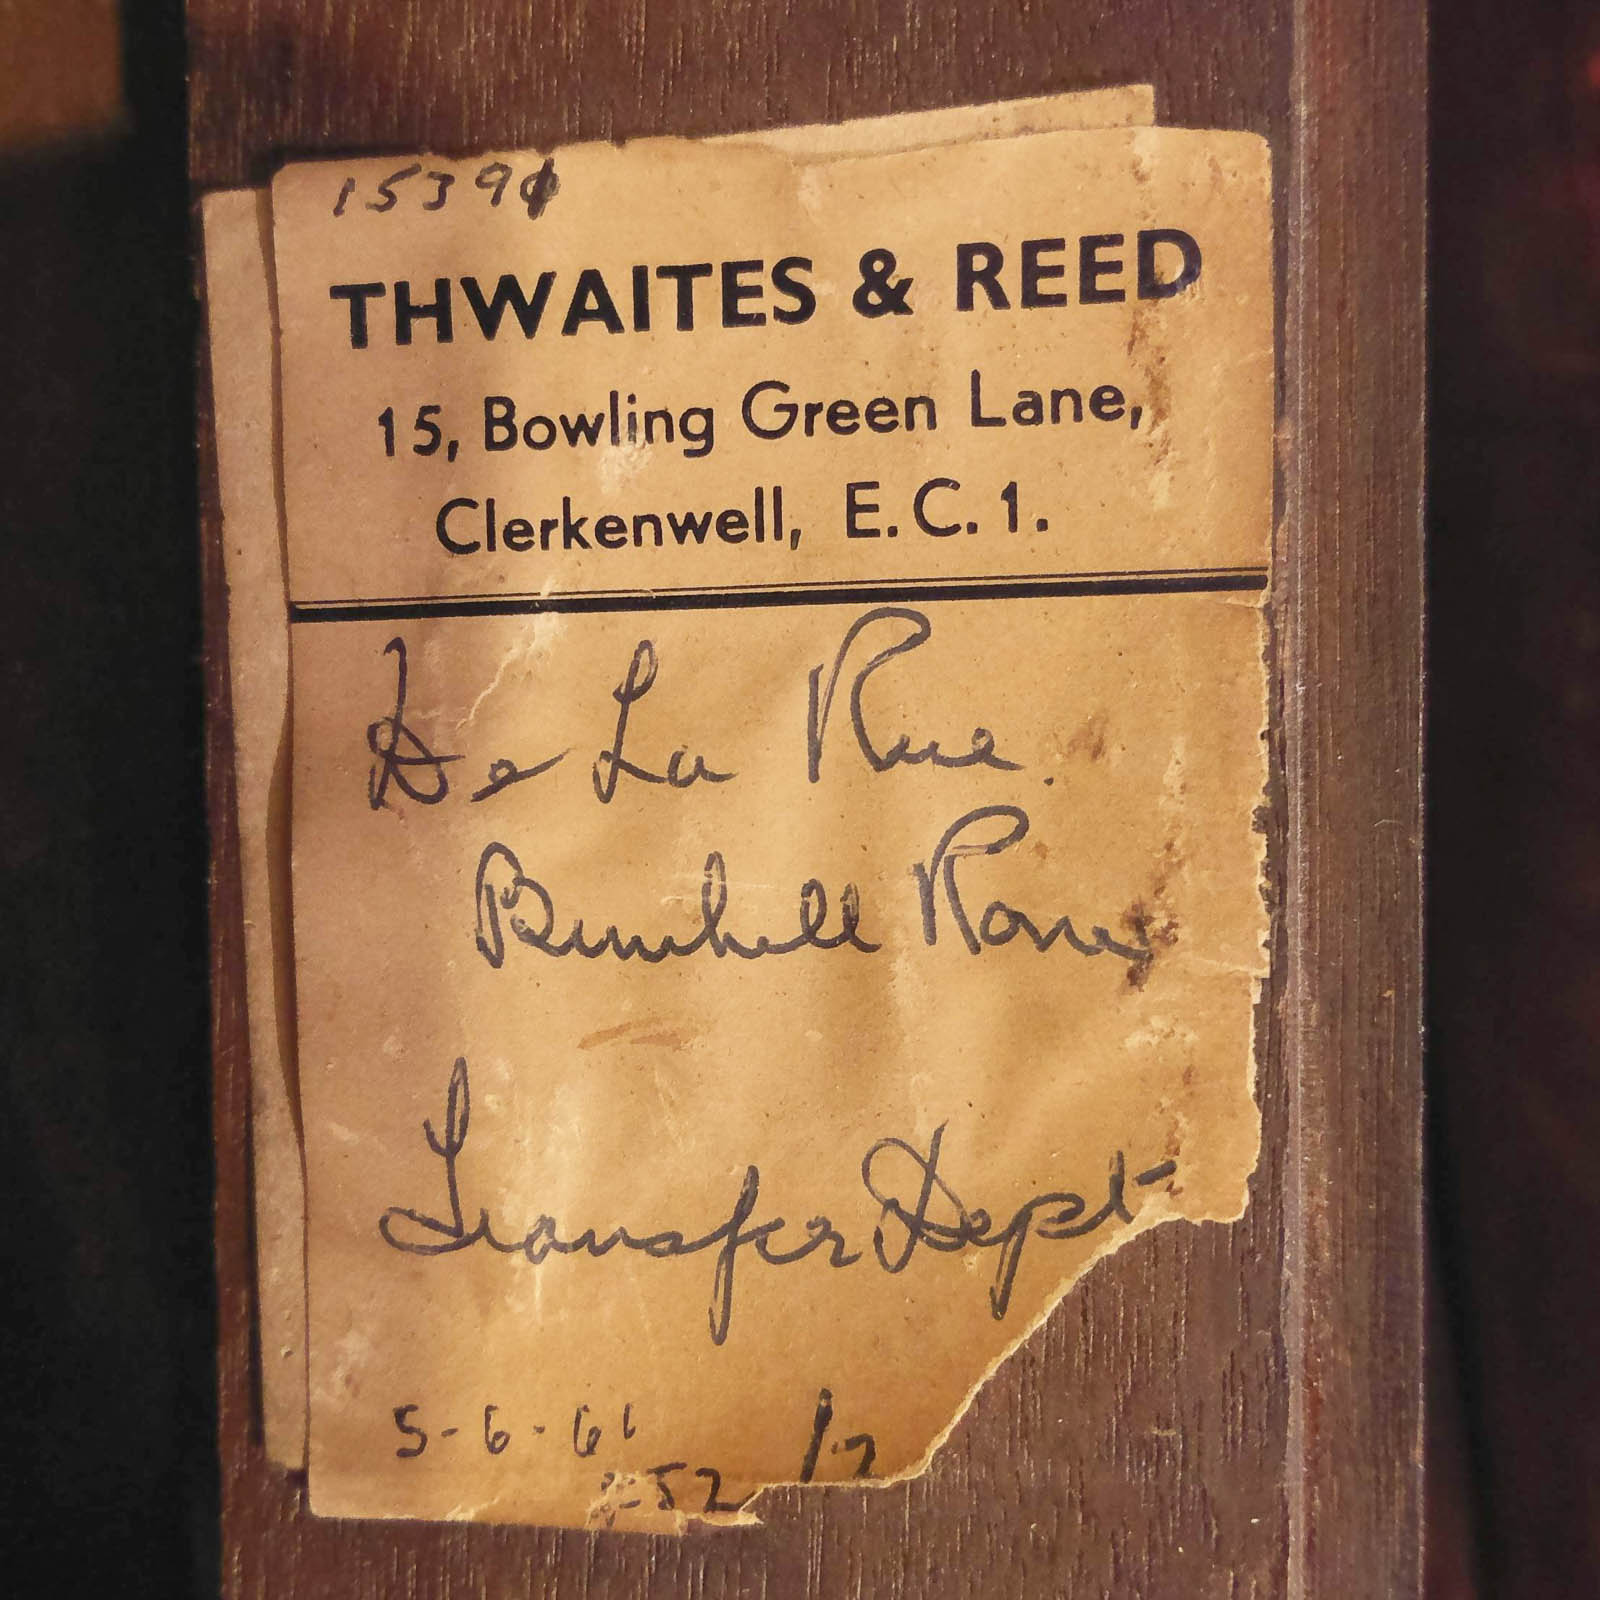 THWAITES & REED
15, Bowling Green Lane,
Clerkenwell, E.C.1.
De La Rue.
Bunhill Row
Transfer Dept
5-6-61